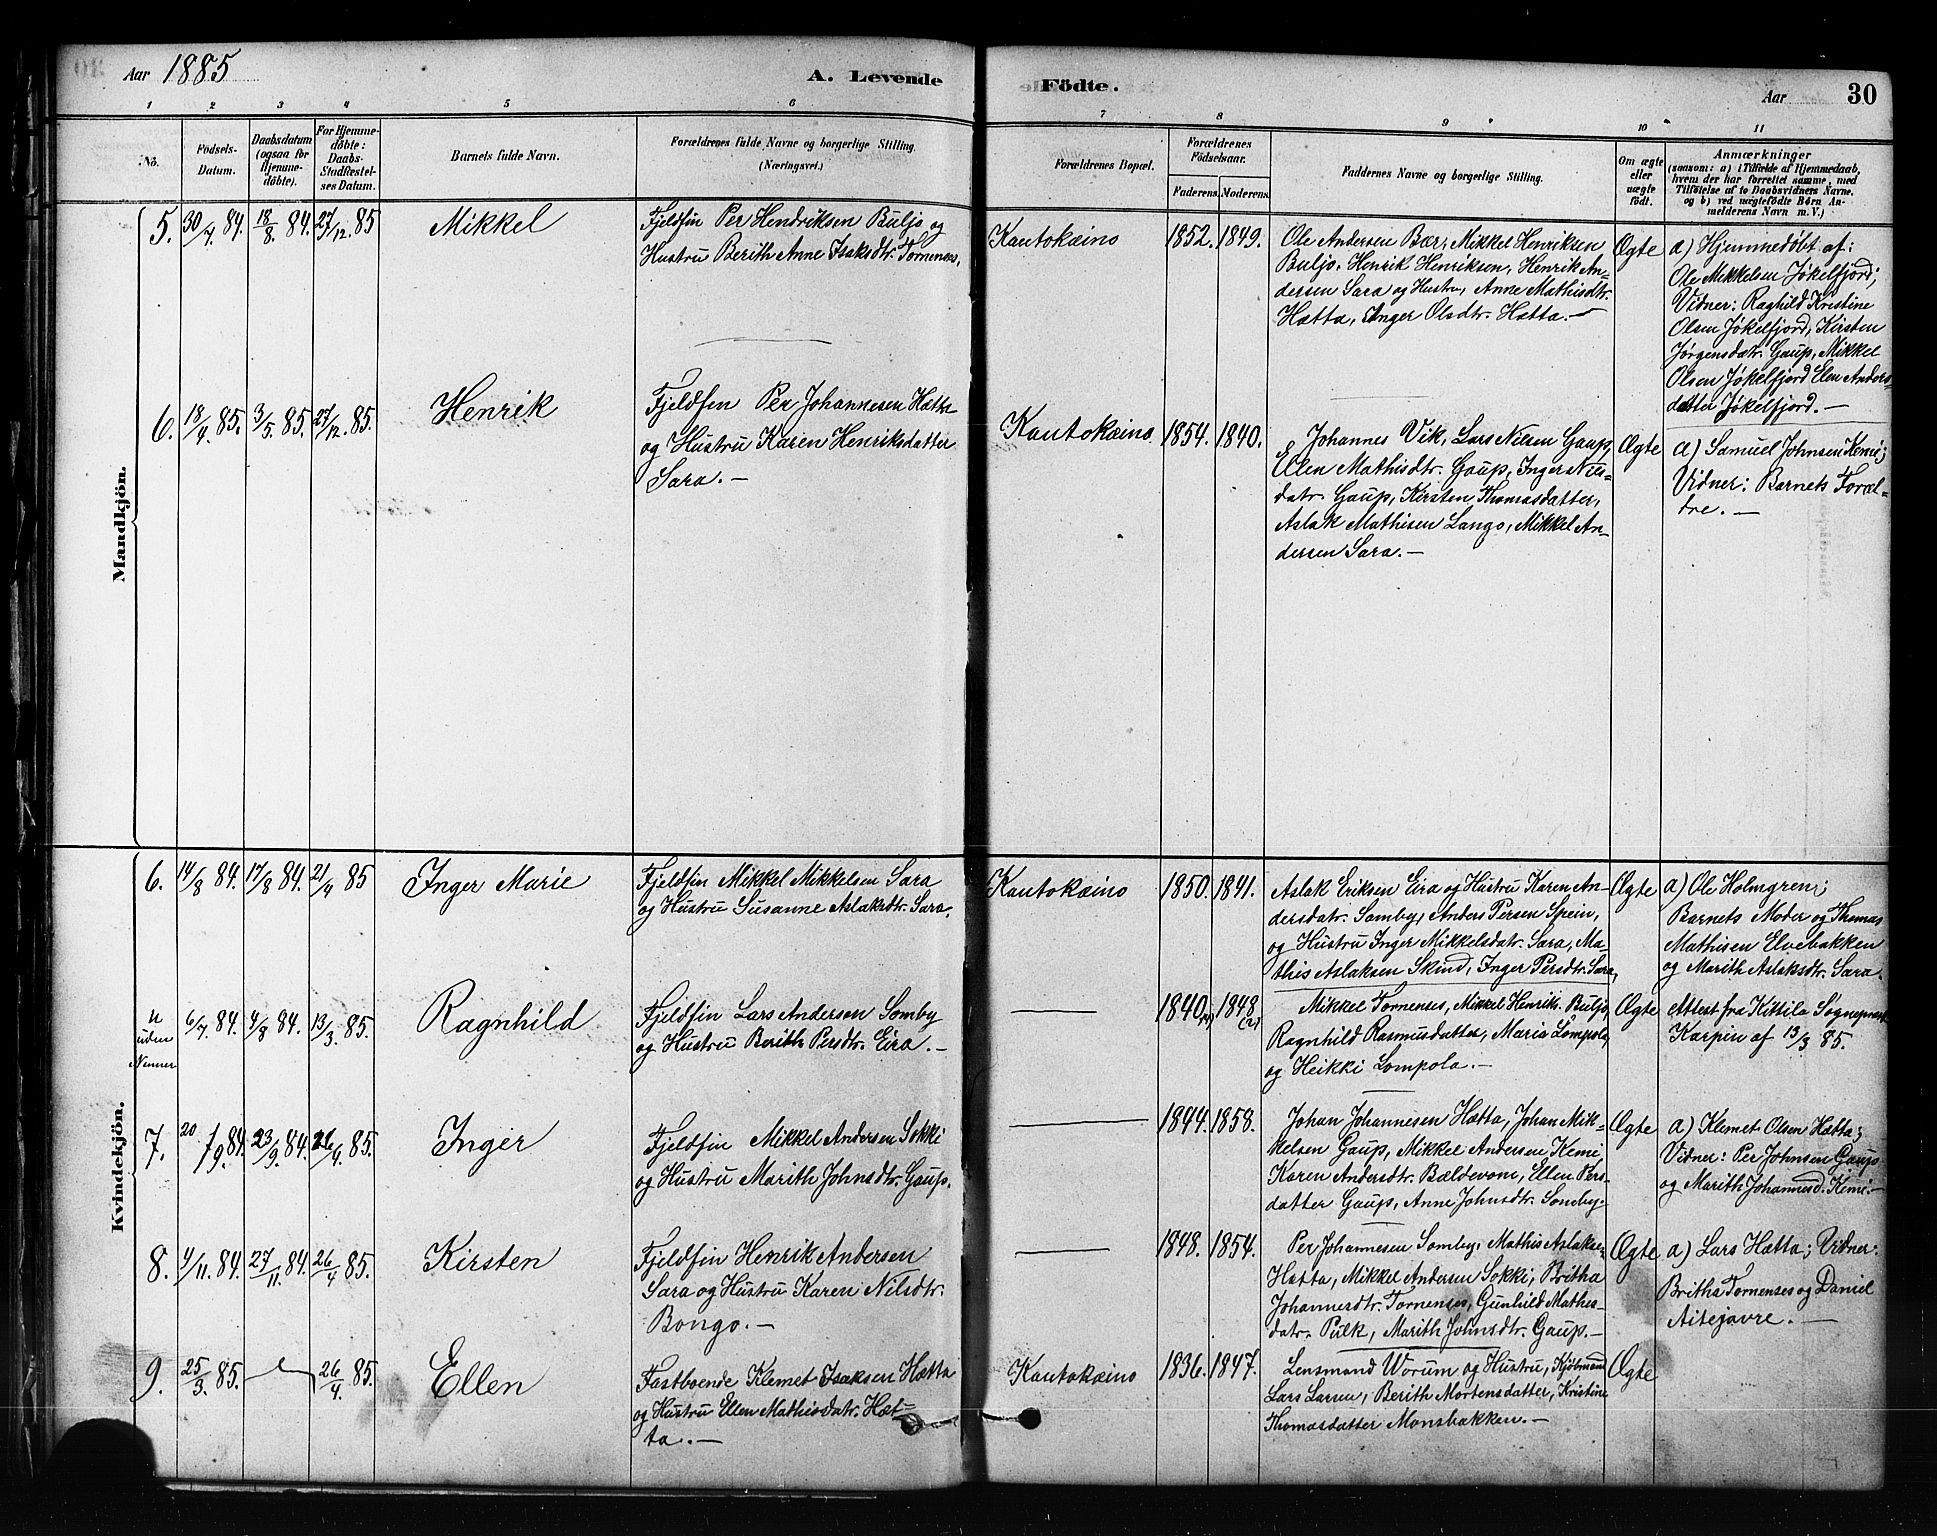 Aar 1885
A. Levende
Födte.
Aar
30
1 2 3 4 5 6 7 8 9 10 11
No.
Födsels-
Datum.
Daabsdatum
(ogsaa for
Hjemme-
döbte).
For Hjemme-
döbte:
Daabs-
Stadfæstel-
ses Datum.
Barnets fulde Navn.
Forældrenes fulde Navne og borgerlige Stilling.
(Næringsvei.)
Forældrenes Bopæl.
Forældrenes
Födselsaar.
Faderens.
Moderens.
Faddernes Navne og borgerlige Stilling.
Om ægte
eller
uægte
født.
Anmærkninger
(saasom: a) i Tilfælde af Hjemmedaab,
hvem der har forrettet samme, med
Tilföielse af to Daabsvidners Navne,
og b) ved uægtefödte Börn An-
melderens Navn m. V.)
Mandkjön.
5. 30/4 84. 18/8. 84. 27/12. 85 Mikkel
Fjeldfin Per Hendriksen Buljo og
Hustru Berith Anne Isaksdtr. Tornenses.
Kautokæino 1852. 1849.
Ole Andersen Bær, Mikkel Henriksen
Buljo, Henrik Henriksen, Henrik An-
dersen Sara og Hustru, Anne Mathisdtr.
Hætta, Inger Olsdtr. Hætta.—
Ægte
a) Hjemmedøbt af:
Ole Mikkelsen Jøkelfjord;
Vidner: Raghild Kristine
Olsen Jøkelfjord, Kirsten
Jørgensdatr. Gaup, Mikkel
Olsen Jøkelfjord Elen Anders-
datter Jøkelfjord.—
6. 18/4 85. 3/5. 85. 27/12. 85. Henrik
Fjeldfin Per Johannesen Hætta
og Hustru Karen Henriksdatter
Sara.—
Kautokæino 1854. 1840.
Johannes Vik, Lars Nilsen Gaup,
Elen Mathisdtr. Gaup, Inger Nils-
datr. Gaup, Kirsten Thomasdatter,
Aslak Mathisen Lango, Mikkel An-
dersen Sara.—
Ægte
a) Samuel Johnsen Kemi;
Vidner: Barnets Foræl-
dre.—
Kvindekjön.
6. 14/8 84. 17/8 84. 21/4 85 Inger Marie
Fjeldfin Mikkel Mikkelsen Sara
og Hustru Susanne Aslaksdtr. Sara.
Kautokæino 1850. 1841.
Aslak Eriksen Eira og Hustru Karen An-
dersdatr. Somby, Anders Persen Spein,
og Hustru Inger Mikkelsdatr. Sara, Ma-
this Aslaksen Skind, Inger Persdtr. Sara,
Ægte
a) Ole Holmgren;
Barnets Moder og Thomas
Mathisen Elvebakken
og Marith Aslaksdtr. Sara.
n
uden
Numer
6/7 84. 4/8 84. 13/3 85. Ragnhild
Fjeldfin Lars Andersen Somby
og Hustru Berith Persdtr. Eira.—
— 1840 1848
Mikkel Tornenses, Mikkel Henriks. Buljo,
Ragnhild Rasmusdatter, Maria Lompola,
og Heikki Lompola.—
Ægte
Attest fra Kittila Sognepræst
Karpin af 13/3 85.
7. 20/9. 84. 23/9. 84. 26/4. 85. Inger
Fjeldfin Mikkel Andersen Sokki
og Hustru Marith Johnsdtr. Gaup.
— 1844. 1858.
Johan Johannesen Hætta, Johan Mik-
kelsen Gaup, Mikkel Andersen Kemi,
Karen Andersdtr. Bældevom, Ellen Pers-
datter Gaup, Anne Johnsdtr. Somby.
Ægte
a) Klemet Olsen Hætta;
Vidner: Per Johnsen Gaup
og Marith Johannesd. Kemi.—
8. 4/11. 84. 27/11. 84. 26/4 85. Kirsten
Fjeldfin Henrik Andersen
Sara og Hustru Karen Nilsdtr.
Bongo.—
— 1848. 1854.
Per Johannesen Somby, Mathis Aslaksen
Hætta, Mikkel Andersen Sokki, Britha
Johannesdtr. Tornenses, Gunhild Mathis-
datr. Pulk, Marith Johnsdtr. Gaup.—
Ægte
a) Lars Hætta; Vidner:
Briths Tornenses og Daniel
Aitejavre.—
9. 25/3. 85. 26/4 85. Ellen
Fastboende Klemet Isaksen Hætta
og Hustru Ellen Mathisdatr. Hæt-
ta.—
Kautokæino 1836. 1847.
Lensmand Worum og Hustru, Kjøbmand
Lars Larsen, Berith Mortensdatter, Kristine
Thomasdatter Monsbakken.—
Ægte